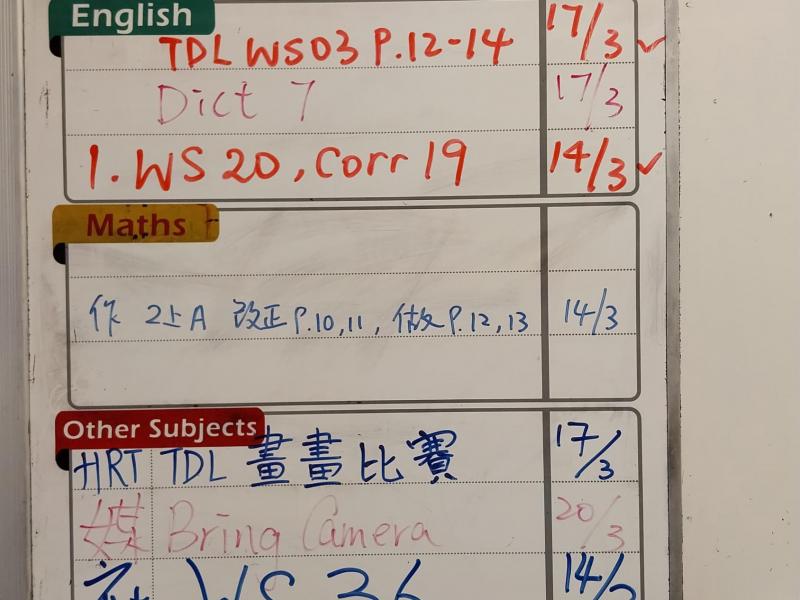 English
TDL WS03 P.12-14 17/3 ✓
Dict 7 17/3
1. WS 20, Corr 19 14/3 ✓
Maths
作 2上A 改正 P.10,11, 做 P.12,13 14/3
Other Subjects
HRT TDL 畫畫比賽 17/3
媒 Bring Camera 20/3
WS 36 14/